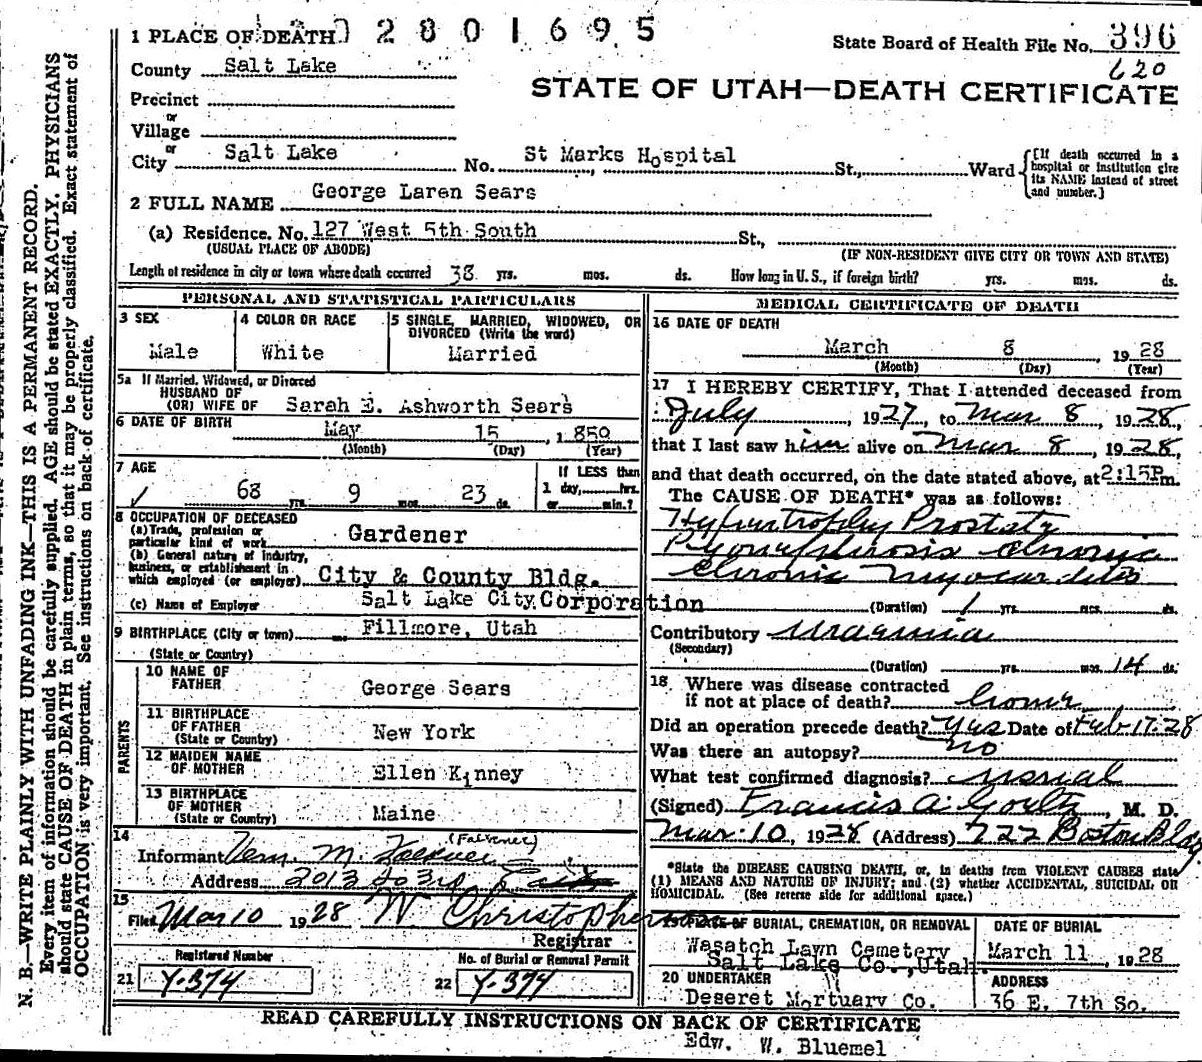 2801695
State Board of Health File No. 396
620
1 PLACE OF DEATH
County Salt Lake
STATE OF UTAH—DEATH CERTIFICATE
Precinct
or
Village
or
City Salt Lake No. St Marks Hospital St., Ward
[If death occurred in a hospital or institution give its NAME instead of street and number.]
2 FULL NAME George Laren Sears
(a) Residence. No. 127 West 5th South St.,
(USUAL PLACE OF ABODE) (IF NON-RESIDENT GIVE CITY OR TOWN AND STATE)
Length of residence in city or town where death occurred 38 yrs. mos. ds. How long in U. S., if foreign birth? yrs. mos. ds.
PERSONAL AND STATISTICAL PARTICULARS
3 SEX
Male
4 COLOR OR RACE
White
5 SINGLE, MARRIED, WIDOWED, OR
DIVORCED (Write the word)
Married
5a If Married, Widowed, or Divorced
HUSBAND OF
(OR) WIFE OF Sarah E. Ashworth Sears
6 DATE OF BIRTH May 15, 1859
(Month) (Day) (Year)
7 AGE
68 yrs. 9 mos. 23 ds.
If LESS than
1 day, hrs.
or min.?
8 OCCUPATION OF DECEASED
(a) Trade, profession or
particular kind of work Gardener
(b) General nature of industry,
business, or establishment in
which employed (or employer) City & County Bldg.
(c) Name of Employer Salt Lake City Corporation
9 BIRTHPLACE (City or town) Fillmore, Utah
(State or Country)
PARENTS
10 NAME OF
FATHER George Sears
11 BIRTHPLACE
OF FATHER
(State or Country) New York
12 MAIDEN NAME
OF MOTHER Ellen Kinney
13 BIRTHPLACE
OF MOTHER
(State or Country) Maine
14
(Falkner)
Informant Vern M.
Address 2013 So 3rd East
15
Filed Mar 10 1928 W Christopherson
Registrar
Registered Number
21 Y-374
No. of Burial or Removal Permit
22 Y-374
MEDICAL CERTIFICATE OF DEATH
16 DATE OF DEATH
March 8, 1928
(Month) (Day) (Year)
17 I HEREBY CERTIFY, That I attended deceased from
July, 1927, to Mar 8, 1928,
that I last saw him alive on Mar 8, 1928,
and that death occurred, on the date stated above, at 2:15P.m.
The CAUSE OF DEATH* was as follows:
Hypertrophy Prostate
Pyonephrosis chronic
Chronic Myocarditis
(Duration) 1 yrs. mos. ds.
Contributory Uraemia
(Secondary)
(Duration) yrs. mos. 14 ds.
18 Where was disease contracted
if not at place of death?
Did an operation precede death? Yes Date of Feb-17-28
Was there an autopsy? no
What test confirmed diagnosis?
(Signed) Francis A. M. D.
Mar-10, 1928 (Address) 722 Boston Bldg
*State the DISEASE CAUSING DEATH, or, in deaths from VIOLENT CAUSES state
(1) MEANS AND NATURE OF INJURY; and (2) whether ACCIDENTAL, SUICIDAL OR
HOMICIDAL. (See reverse side for additional space.)
19 PLACE OF BURIAL, CREMATION, OR REMOVAL
Wasatch Lawn Cemetery
Salt Lake Co., Utah.
DATE OF BURIAL
March 11, 1928
20 UNDERTAKER
Deseret Mortuary Co.
ADDRESS
36 E. 7th So.
READ CAREFULLY INSTRUCTIONS ON BACK OF CERTIFICATE
Edw. W. Bluemel
N. B.—WRITE PLAINLY WITH UNFADING INK—THIS IS A PERMANENT RECORD.
Every item of information should be carefully supplied. AGE should be stated EXACTLY. PHYSICIANS
should state CAUSE OF DEATH in plain terms, so that it may be properly classified. Exact statement of
OCCUPATION is very important. See instructions on back of certificate.